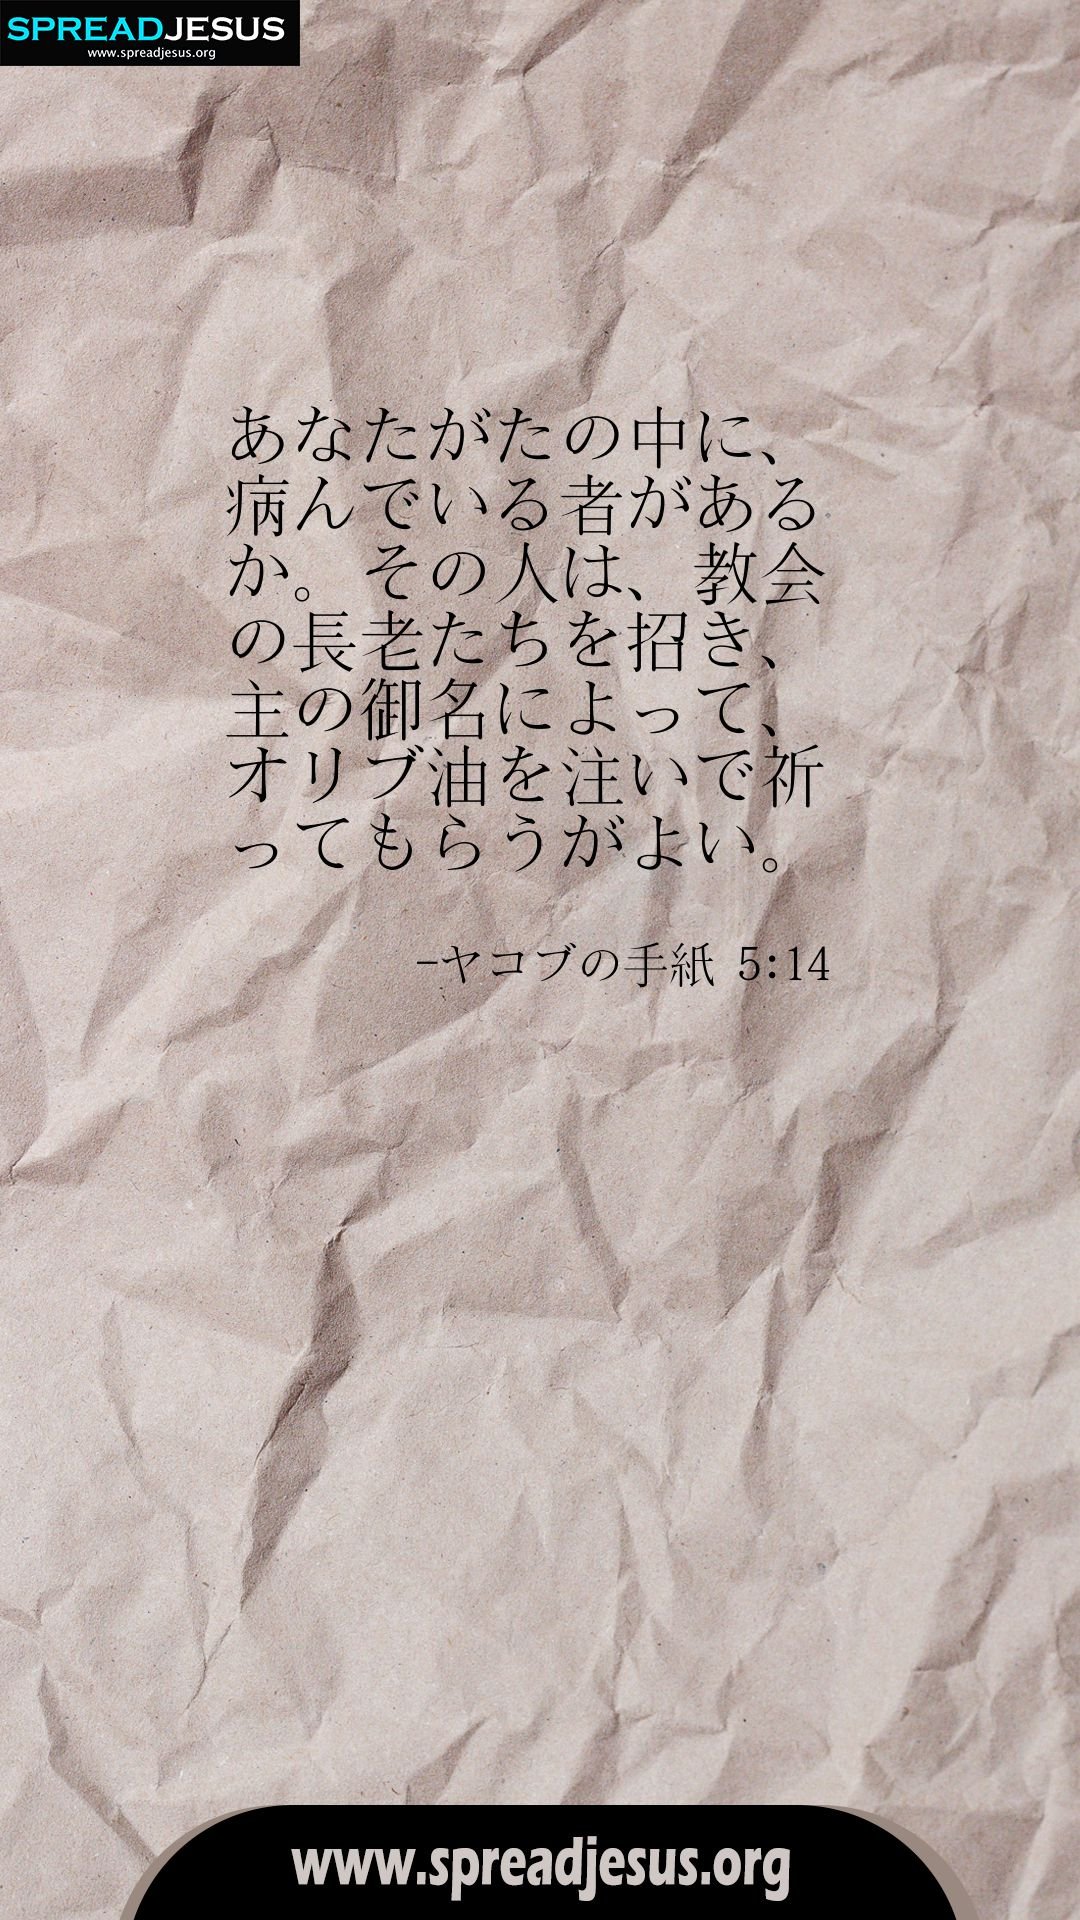 SPREADJESUS
www.spreadjesus.org
あなたがたの中に、
病んでいる者がある
か。その人は、教会
の長老たちを招き、
主の御名によって、
オリブ油を注いで祈
ってもらうがよい。
-ヤコブの手紙 5:14
www.spreadjesus.org